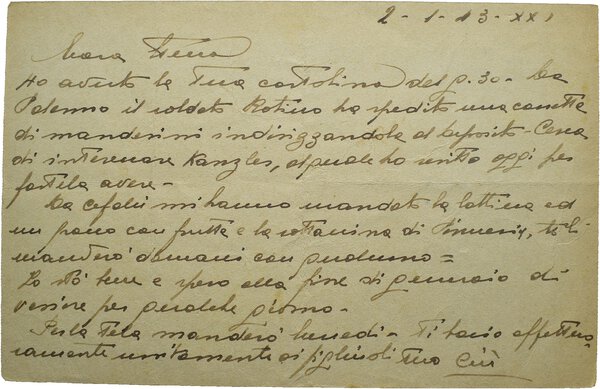 2-1-43-XXI
Cara
Ho avuto la tua cartolina del g. 30 - Da
Palermo il soldato ha spedito una cassetta
di mandarini indirizzandola al deposito - Cerca
di interessare Kanzler, al quale ho scritto oggi per
fartela avere -
Da Cefalù mi hanno mandato la lattina ed
un pacco con frutta e la sottanina di, te li
manderò domani con qualcuno =
Io stò bene e spero alla fine di gennaio di
venire per qualche giorno -
Per la tela manderò lunedi - Ti bacio affettuo-
samente unitamente ai figliuoli tuo